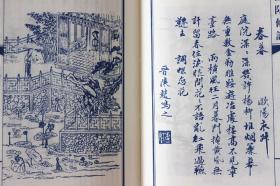 春暮
歐陽永叔
庭院深深幾許楊柳堆烟簾幕
無重數金勒雕鞍遊冶處樓高不見章
臺路 雨橫風狂三月暮門掩黃昏無
計留春住淚眼問花花不語亂紅飛過鞦
韆去 調蝶戀花